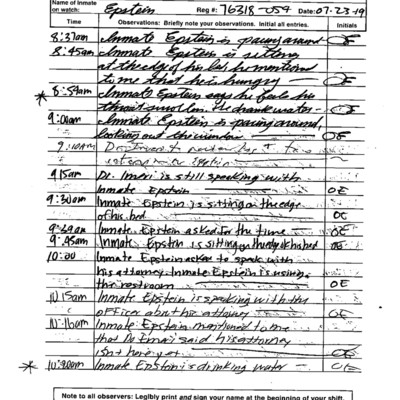 Name of Inmate
on watch: Epstein Reg #: 76318-054 Date: 07-23-19
Time Observations: Briefly note your observations. Initial all entries. Initials
8:37am Inmate Epstein is pacing around OE
8:45am Inmate Epstein is sitting
at the edge of his bed he mentioned
time that he is hungry OE
* 8:59am Inmate Epstein says he feels his
throat swollen. drank water
9:00am Inmate Epstein is pacing around,
looking out the window OE
9:10am Dr.
Epstein
9:15am Dr. is still speaking with
Inmate Epstein OE
9:30am Inmate Epstein is sitting on the edge
of his bed OE
Inmate Epstein asked for the time OE
9:45am Inmate Epstein is sitting on the edge of his bed OE
10:00 Inmate Epstein asked to speak with
his attorney. Inmate Epstein is using
the restroom OE
10:15am Inmate Epstein is speaking with the
officer about his attorney OE
10:16am Inmate Epstein mentioned to me
that Dr. said his attorney
isn't here yet OE
* Inmate Epstein is drinking water - OE
Note to all observers: Legibly print and sign your name at the beginning of your shift.